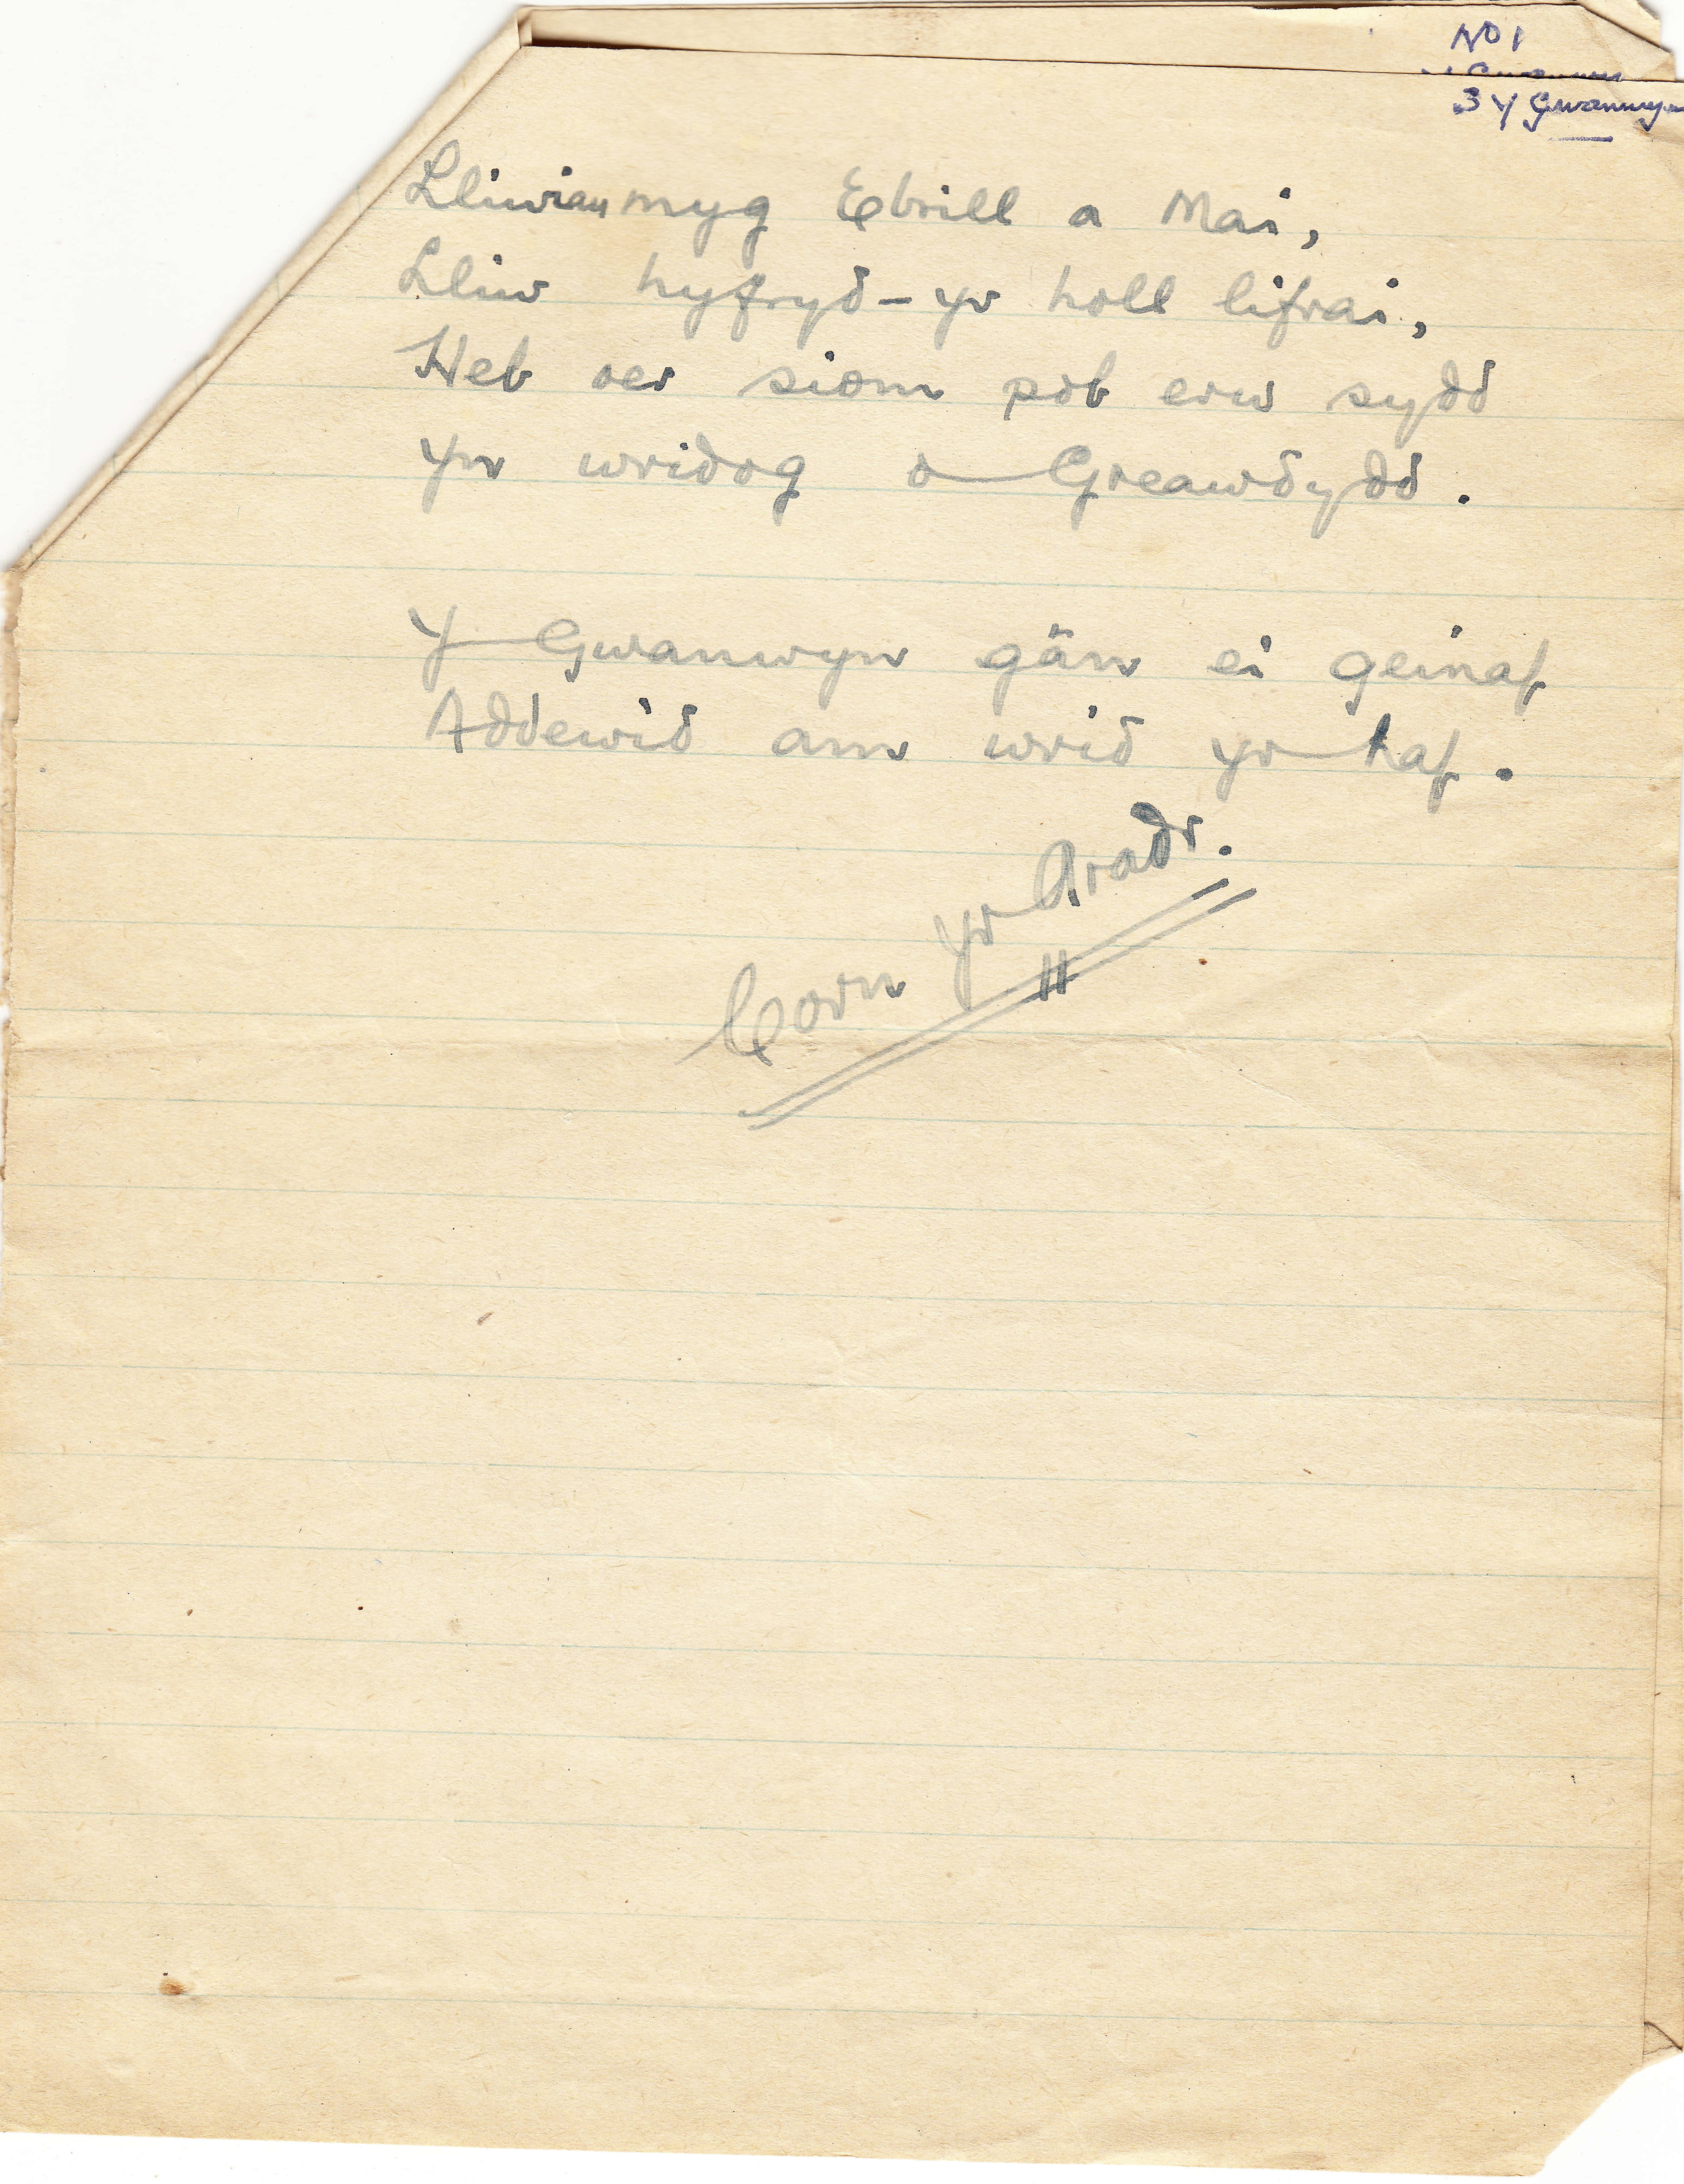 No 1
3 Y Gwanwyn
Lliwiau myg Ebrill a Mai,
Lliw hyfryd - yr holl lifrai,
Heb oer siom pob erw sydd
Yn wridog o Greawdydd.
Y Gwanwyn gân ei geinaf
Addewid am wrid yr haf.
Corn yr Aradr.